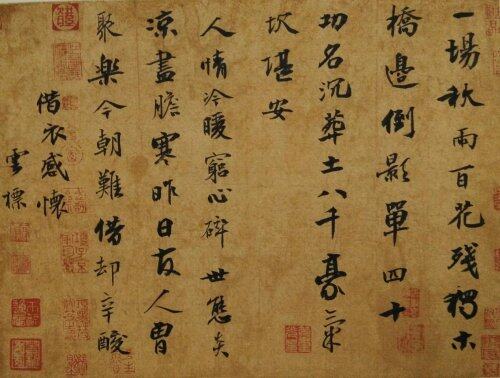 一場秋雨百花殘獨木
橋邊倒影單四十
功名沉葬土八千豪氣
坎堪安
人情冷暖窮心碎世態炎
涼盡膽寒昨日友人曾
聚樂今朝難借却辛酸
借衣感懷
雲標